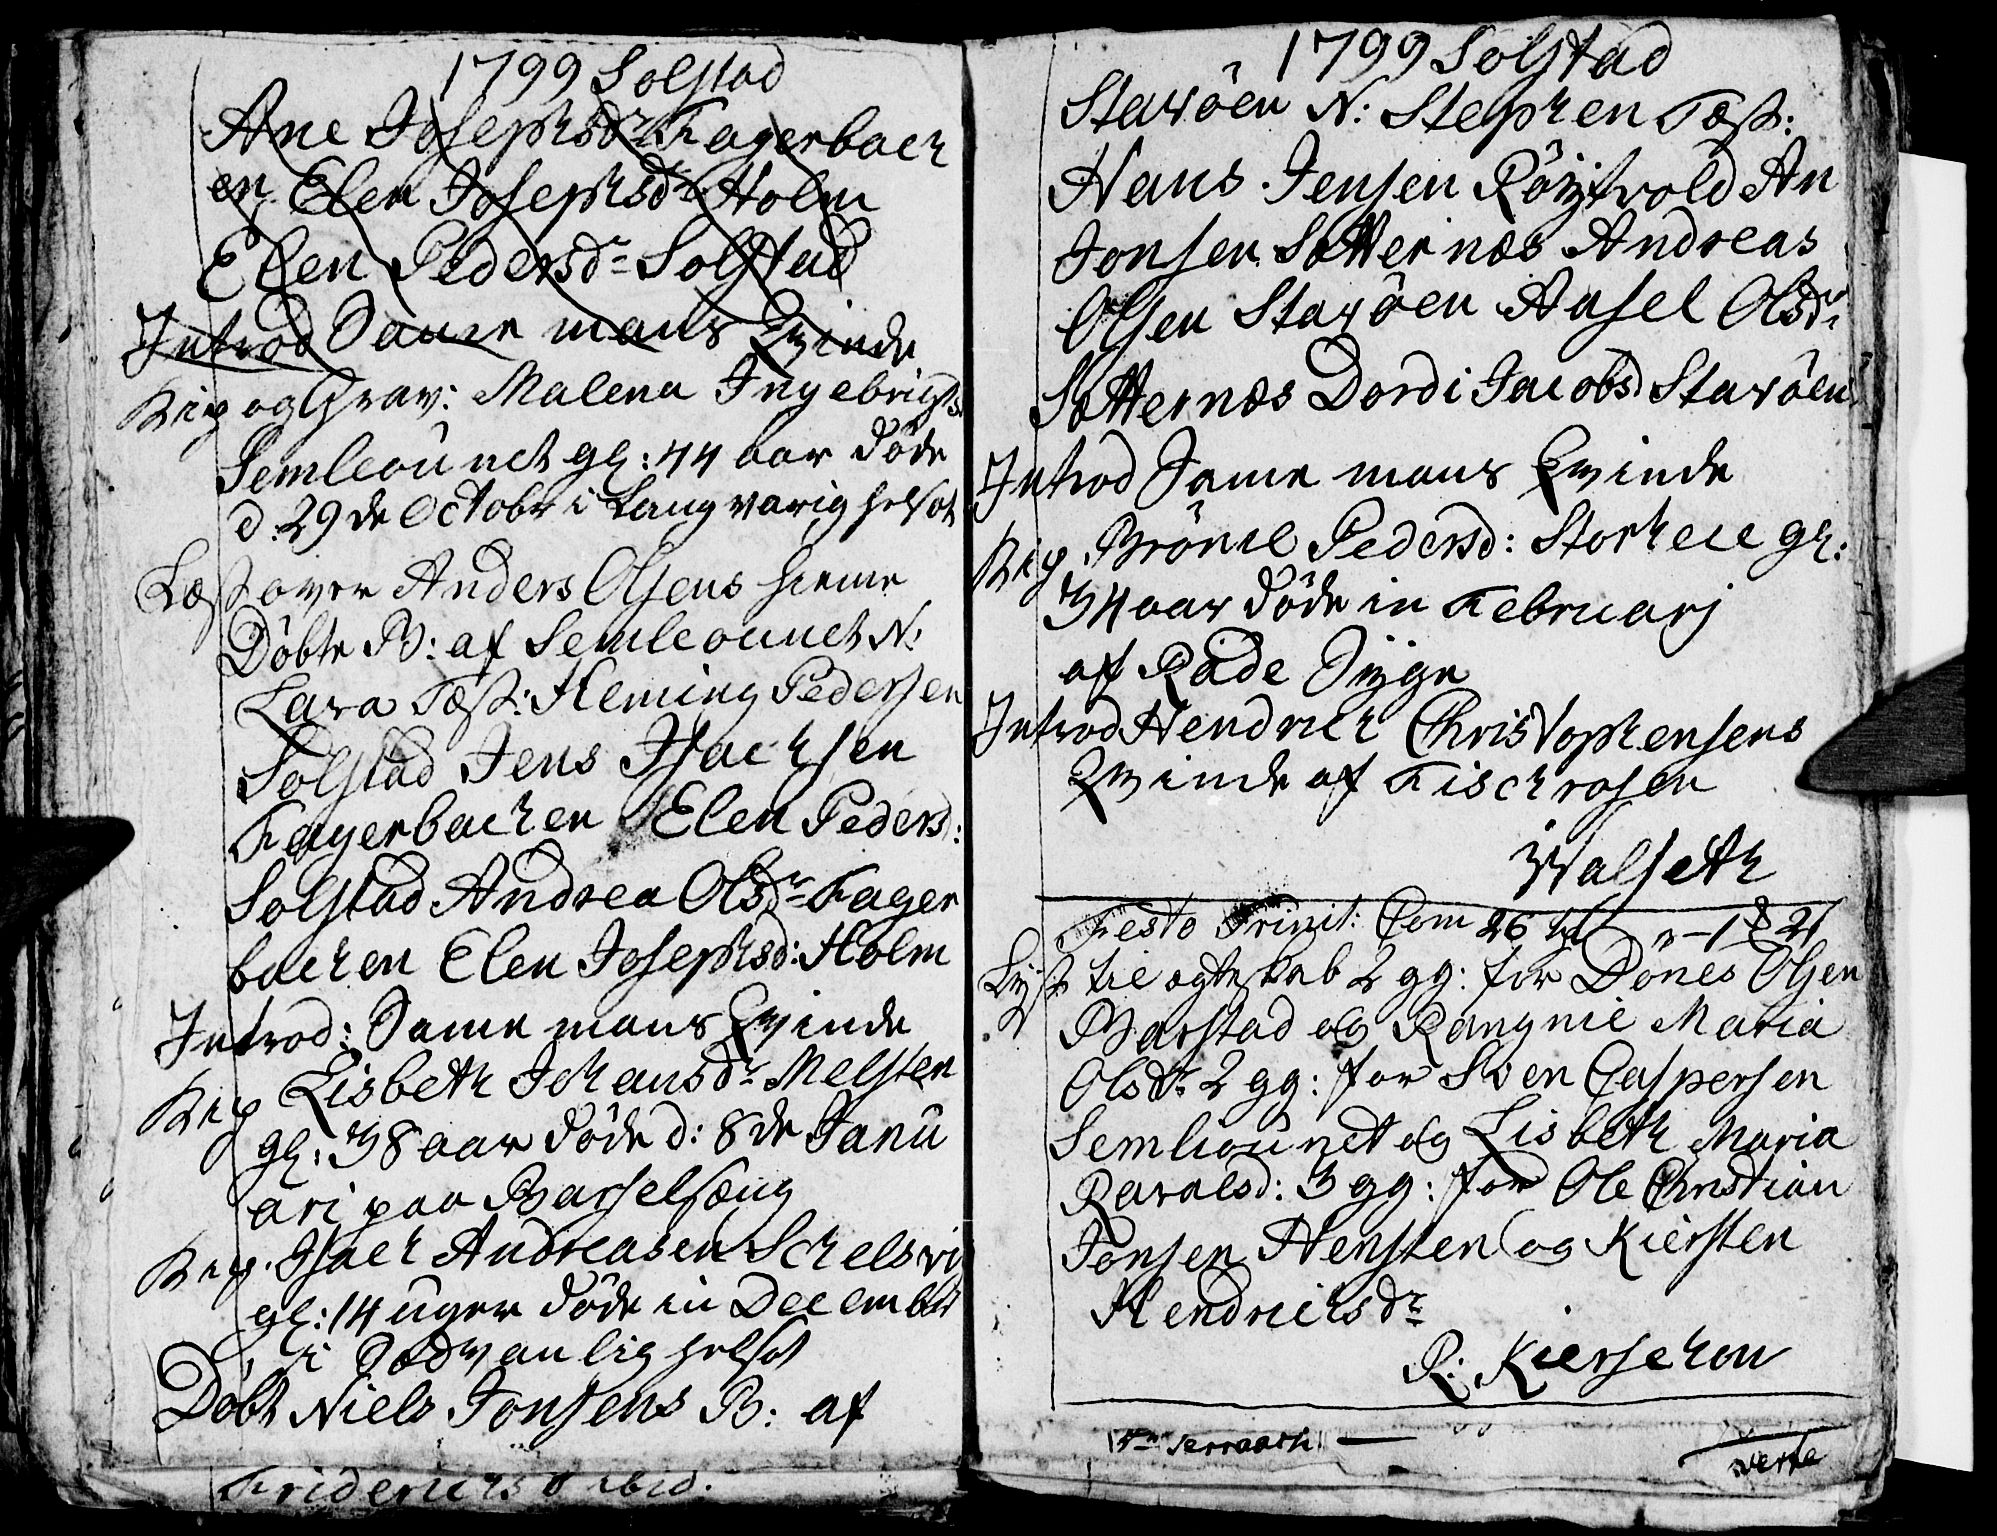 1799 Solstad
Ane Josephsdr Fagerbach
en Elen Josephsdr Holm
Elen Pedersdr Solstad
Introd Same mans Qvinde
og Grav: Malena Ingebrigts
Semleounet gl: 44 aar døde
d. 29de Octobr i Langvarig helsot
Læst over Anders Olsens hieme
Døbte B: af Semleounet N:
Lava Test: Heming Pedersen
Solstad Jens Isachsen
Fagerbachen Elen Pedersd:
Solstad Andrea Olsdr Fager
bachen Elen Josephsd: Holm
Introd: Same mans Qvinde
Lisbeth Johansdr Melsten
gl: 38 aar døde d: 8de Janu
ari paa Barselseng
Isach Andreasen Schelsvig
gl: 14 uger døde in December
i Sædvanlig helsot
Døbt Niels Jonsens B: af
1799 Solstad
Stavøen N: Stephen Test:
Hans Jensen Røytvold An
Jonsen Sætternæs Andreas
Olsen Stavøen Ansel Olsdr
Sætternæs Dordi Jacobsd Stavøen
Introd Same mans Qvinde
Brønel Pedersd: Storheie gl:
34 aar døde in Februarj
af Rade Syge
Introd Hendrich Christophersens
Qvinde af Fischrosen
Walseth
Festo Trinit: Com 26
Lyst til egteskab 2 gg: for Dønes Olsen
Barstad og Rangnie Maria
Olsdr 2 gg: for Sven Caspersen
Semliounet og Lisbeth Maria
Pavalsd: 3 gg: for Ole Christian
Jonsen Hensten og Kiersten
Hendrichsdr
R: Kierschou